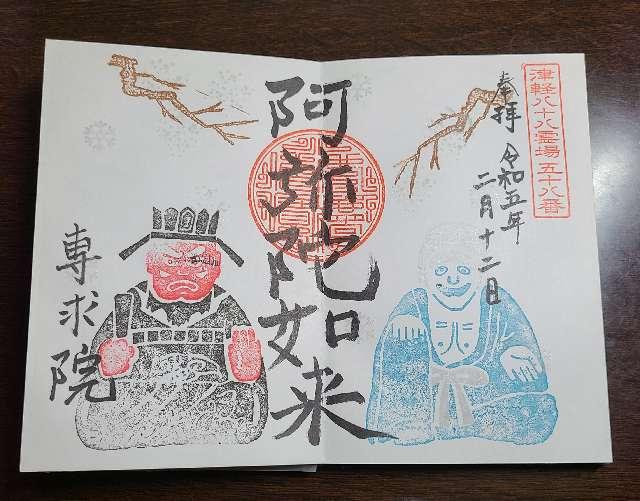 津軽八十八霊場五十八番
奉拝
令和五年
二月十二日
阿弥陀如来
専求院